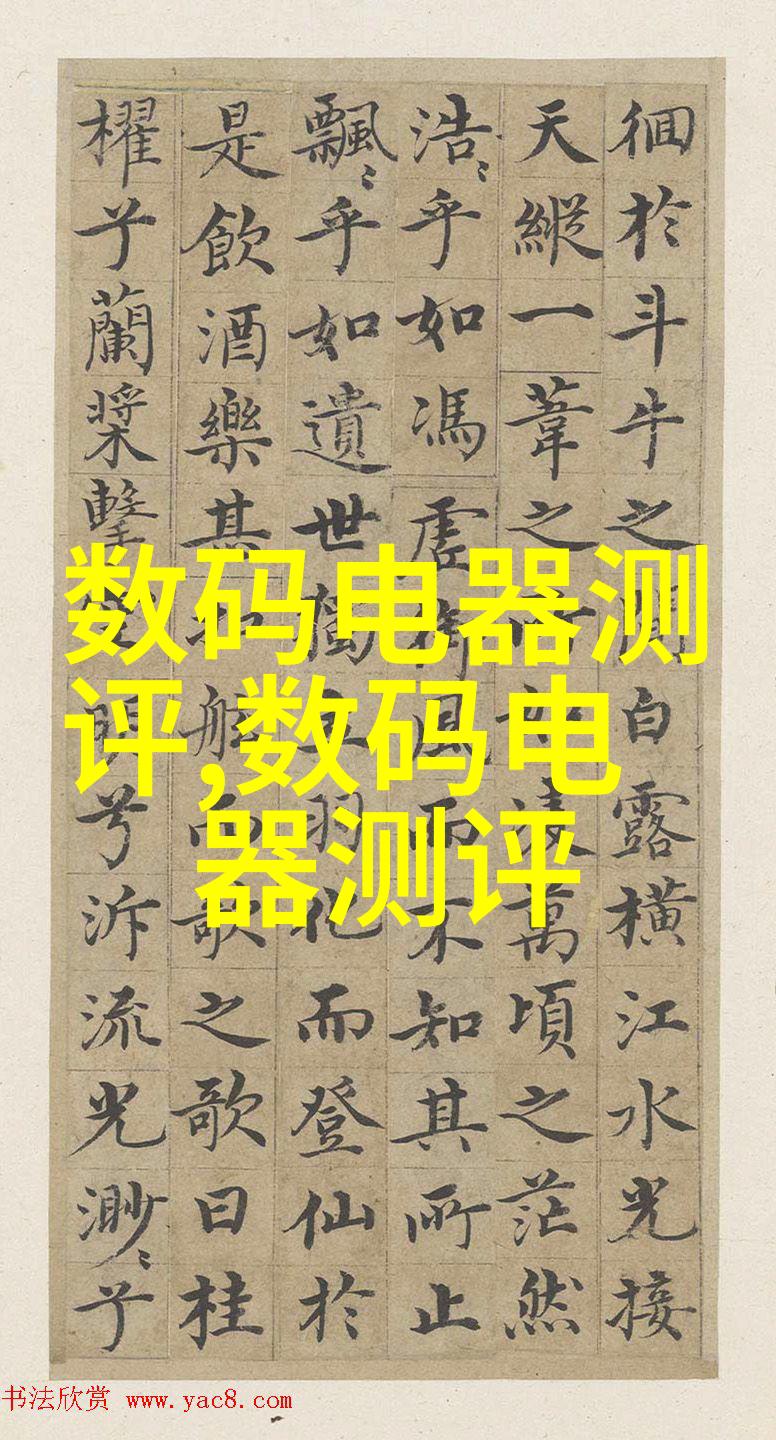 徊於斗牛之間白露橫江水光接
天縱一葦之所如凌萬頃之茫然
浩〻乎如馮虛御風而不知其所止
飄〻乎如遺世獨立羽化而登仙於
是飲酒樂甚扣舷而歌之歌曰桂
櫂兮蘭槳擊空明兮泝流光渺〻兮
数码电器测
评,数码电
器测评
书法欣赏 www.yac8.com